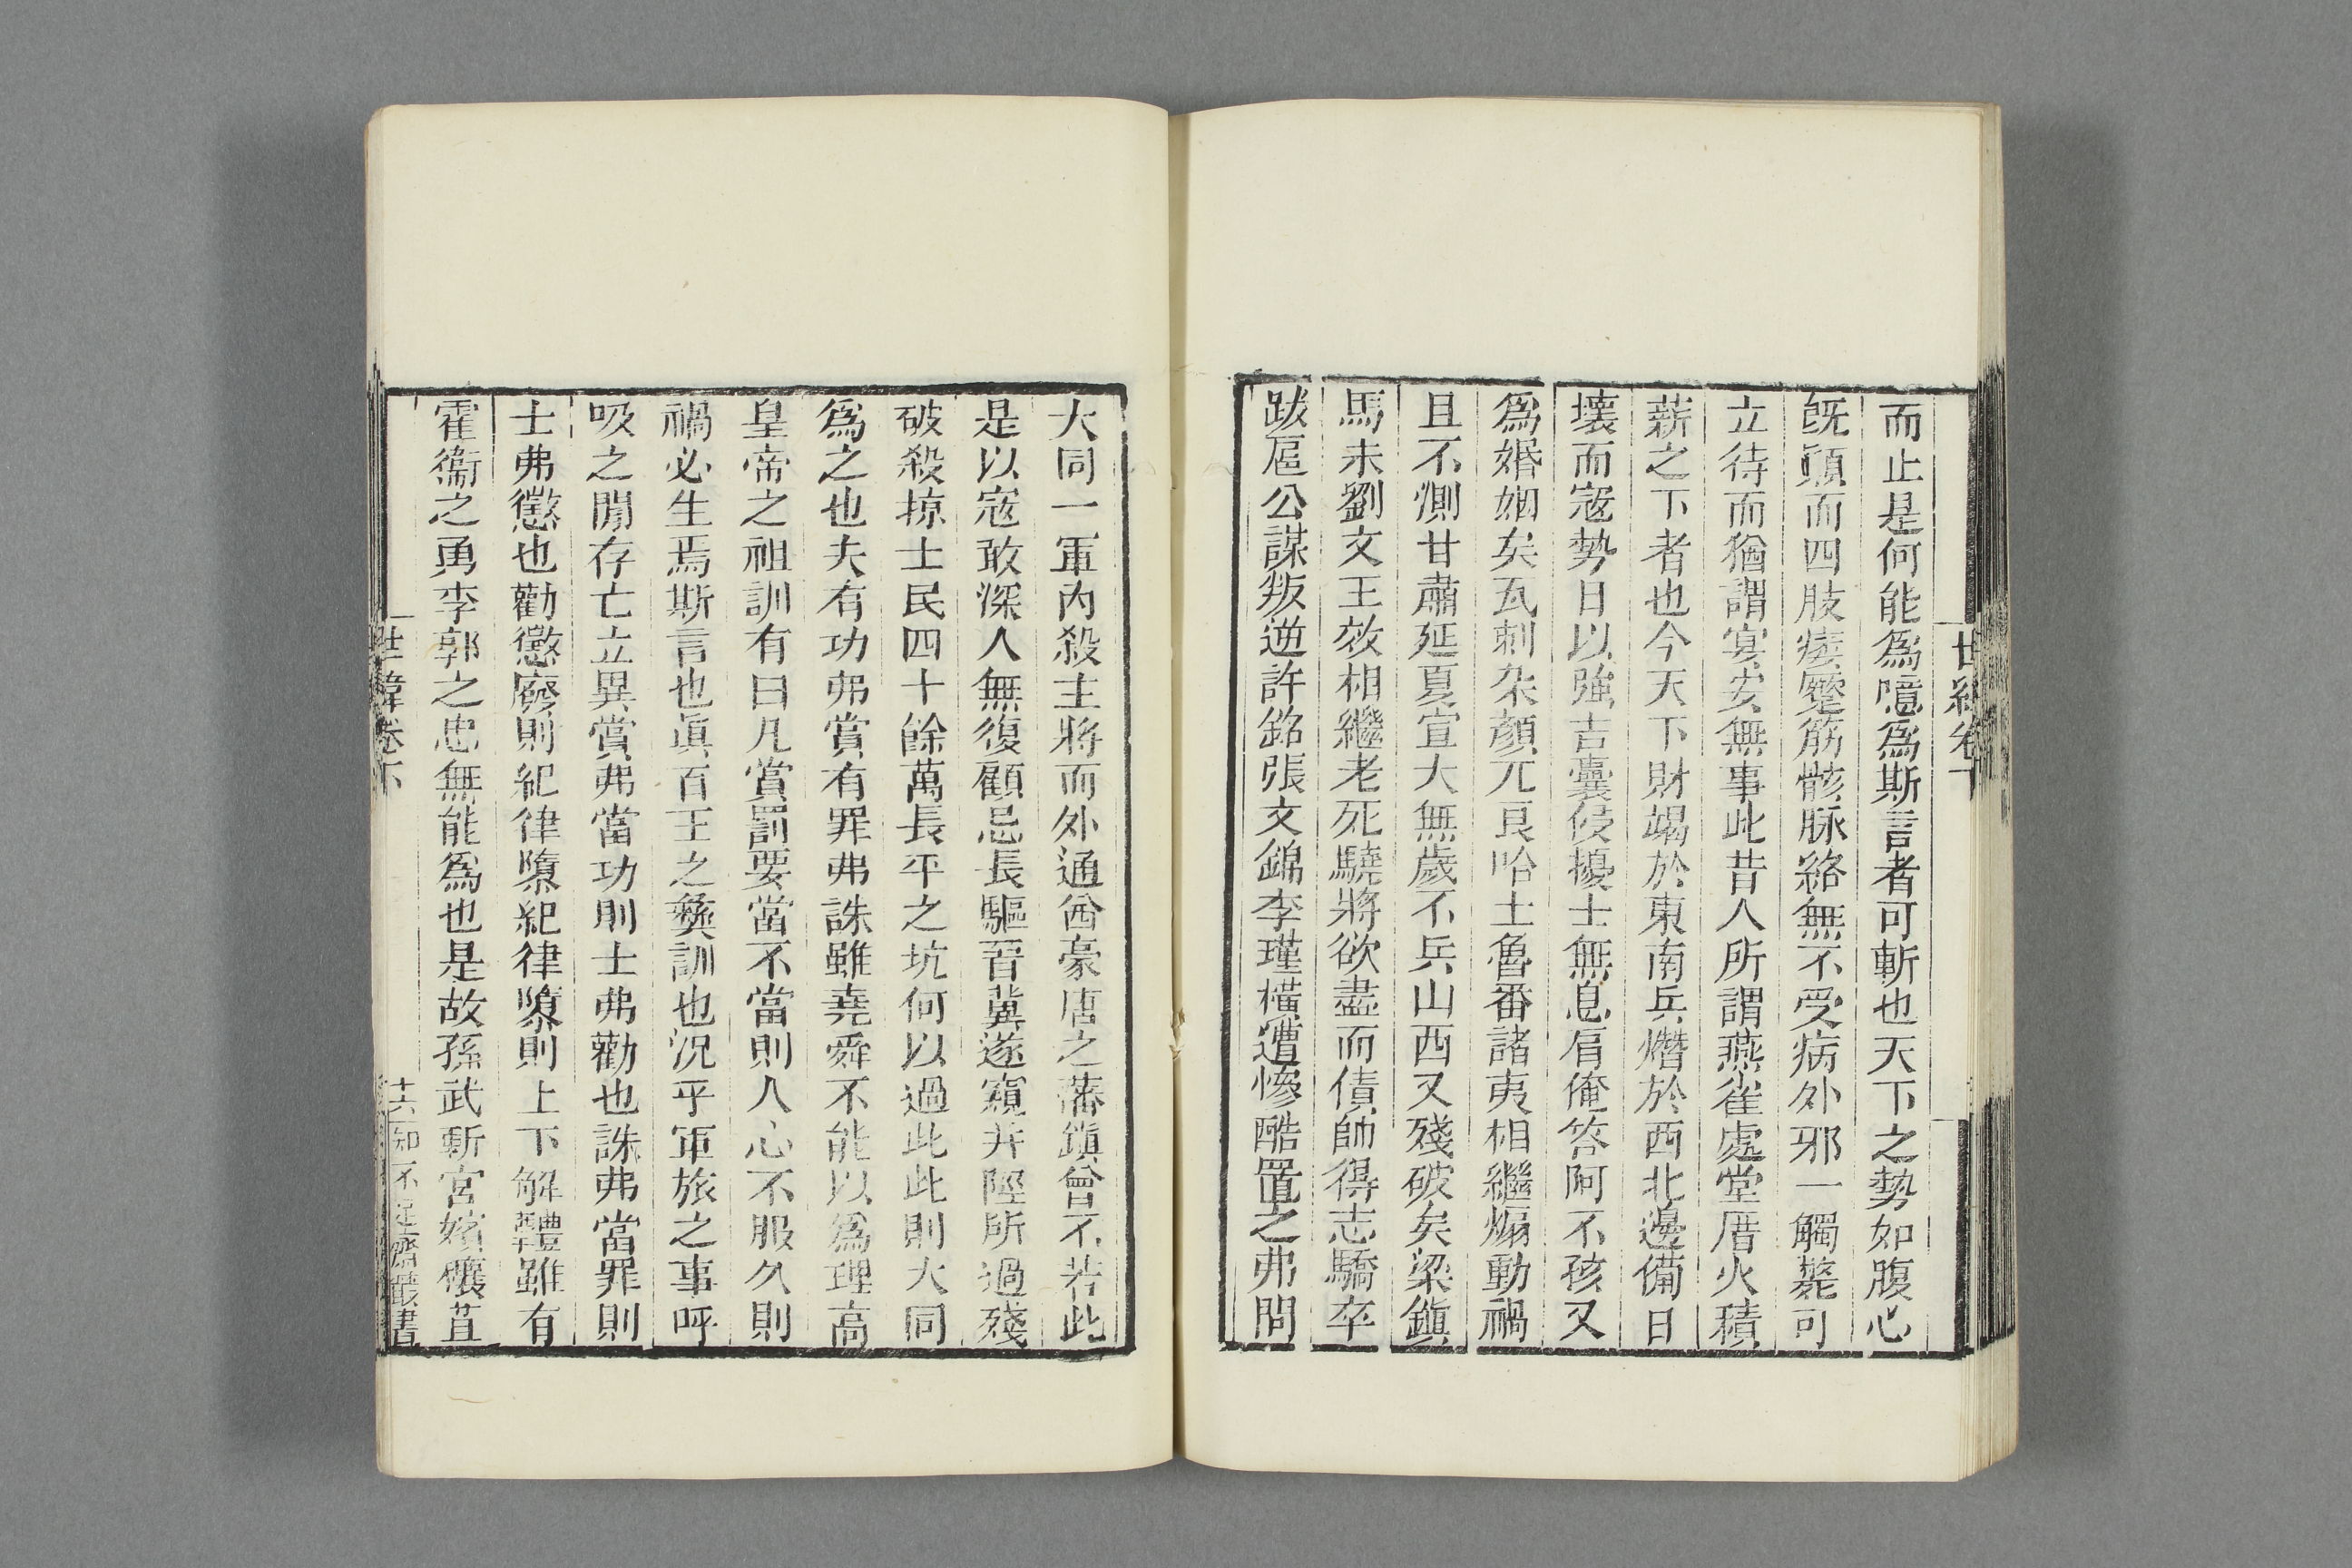 世緯卷下
而止是何能爲噫爲斯言者可斬也天下之勢如腹心
旣顚而四肢痿躄筋骸脉絡無不受病外邪一觸斃可
立待而猶謂宴安無事此昔人所謂燕雀處堂厝火積
薪之下者也今天下財竭於東南兵熸於西北邊備日
壞而寇勢日以強吉囊侵擾士無息肩俺答阿不孩又
爲婚姻矣瓦剌朶顏兀良哈土魯番諸夷相繼煽動禍
且不測甘肅延夏宣大無歲不兵山西又殘破矣梁鎭
馬未劉文王效相繼老死驍將欲盡而債帥得志驕卒
跋扈公謀叛逆許銘張文錦李瑾橫遭慘酷置之弗問
大同一軍內殺主將而外通酋豪唐之藩鎭曾不若此
是以寇敢深人無復顧忌長驅晉冀遂窺井陘所過殘
破殺掠士民四十餘萬長平之坑何以過此此則大同
爲之也夫有功弗賞有罪弗誅雖堯舜不能以爲理高
皇帝之祖訓有曰凡賞罰要當不當則人心不服久則
禍必生焉斯言也眞百王之彝訓也況乎軍旅之事呼
吸之閒存亡立異賞弗當功則士弗勸也誅弗當罪則
士弗懲也勸懲廢則紀律隳紀律隳則上下解體雖有
霍衞之勇李郭之忠無能爲也是故孫武斬宮嬪穰苴
世緯卷下 十六 知不足齋叢書